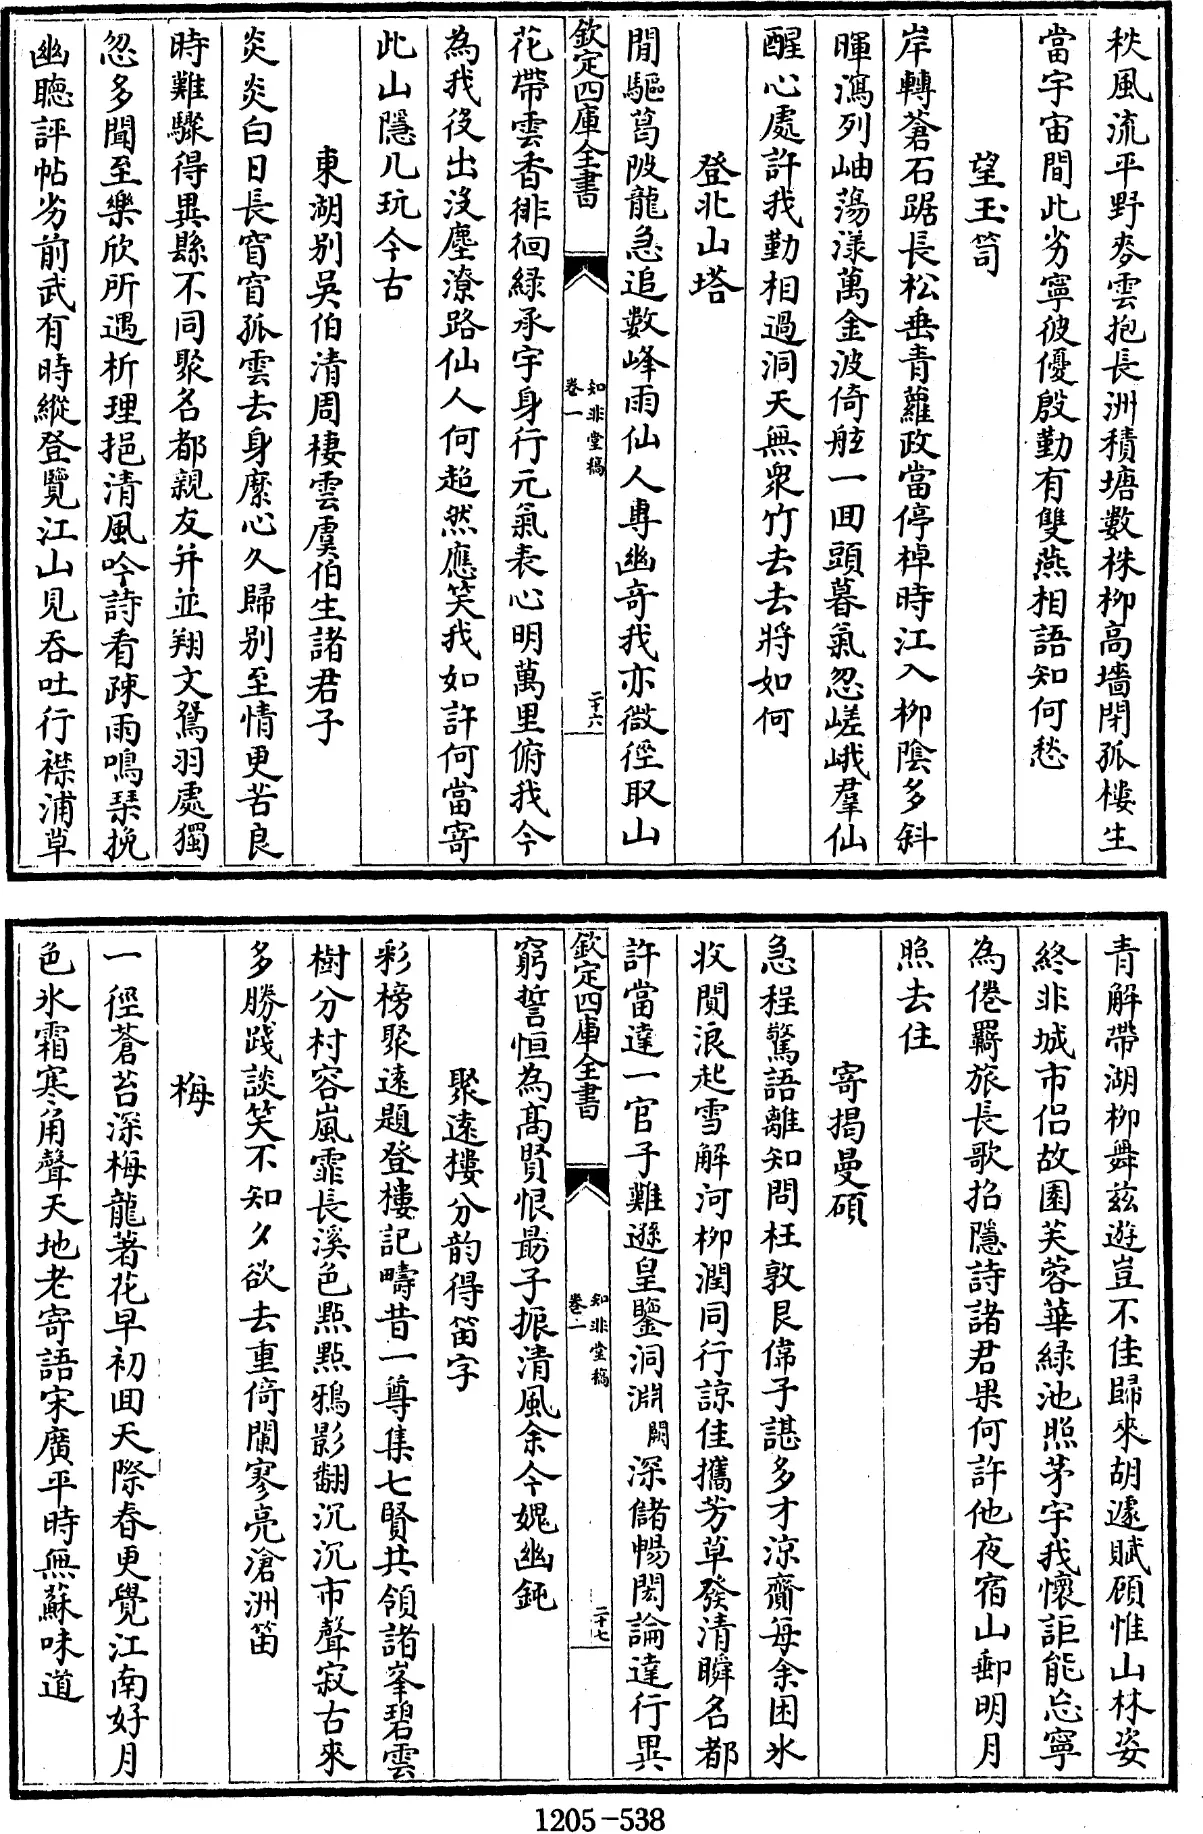 秋風流平野麥雲抱長洲積塘數株栁高墻閉孤樓生
當宇宙間此劣寧彼優殷勤有雙燕相語知何愁
望玉笥
岸轉蒼石踞長松垂青蘿政當停棹時江入栁陰多斜
暉瀉列岫蕩漾萬金波倚舷一回頭暮氣忽嵯峨羣仙
醒心處許我勤相過洞天無衆竹去去將如何
登北山塔
閒驅葛陂龍急追數峰雨仙人專幽竒我亦微徑取山
欽定四庫全書
知非堂稿
卷一
二十六
花帶雲香徘徊綠承宇身行元氣表心明萬里俯我今
為我役出沒塵潦路仙人何超然應笑我如許何當寄
此山隱几玩今古
東湖别吳伯清周棲雲虞伯生諸君子
炎炎白日長窅窅孤雲去身縻心久歸别至情更苦良
時難驟得異縣不同聚名都親友并並翔文鴛羽處獨
忽多聞至樂欣所遇析理挹清風吟詩看疎雨鳴琹挽
幽聽評帖劣前武有時縱登覽江山見吞吐行襟浦草
青解帶湖栁舞兹遊豈不佳歸來胡遽賦頋惟山林姿
終非城市侣故園芙蓉華綠池照茅宇我懷詎能忘寧
為倦羇旅長歌招隱詩諸君果何許他夜宿山郵明月
照去住
寄揭曼碩
急程驚語離知問枉敦艮偉子諶多才涼齎每余困氷
收閴浪起雪解河栁潤同行諒佳攜芳草發清瞬名都
許當達一官子難遜皇鑒洞淵闕深儲暢閎論達行異
欽定四庫全書
知非堂稿
卷一
二十七
窮誓恒為髙賢恨朂子振清風余今媿幽鈍
聚逺樓分韵得笛字
彩榜聚逺題登樓記疇昔一尊集七賢共領諸峯碧雲
樹分村容嵐霏長溪色點點鴉影翻沉沉市聲寂古來
多勝踐談笑不知久欲去重倚闌寥亮滄洲笛
梅
一徑蒼苔深梅龍著花早初回天際春更覺江南好月
色氷霜寒角聲天地老寄語宋廣平時無蘇味道
1205-538